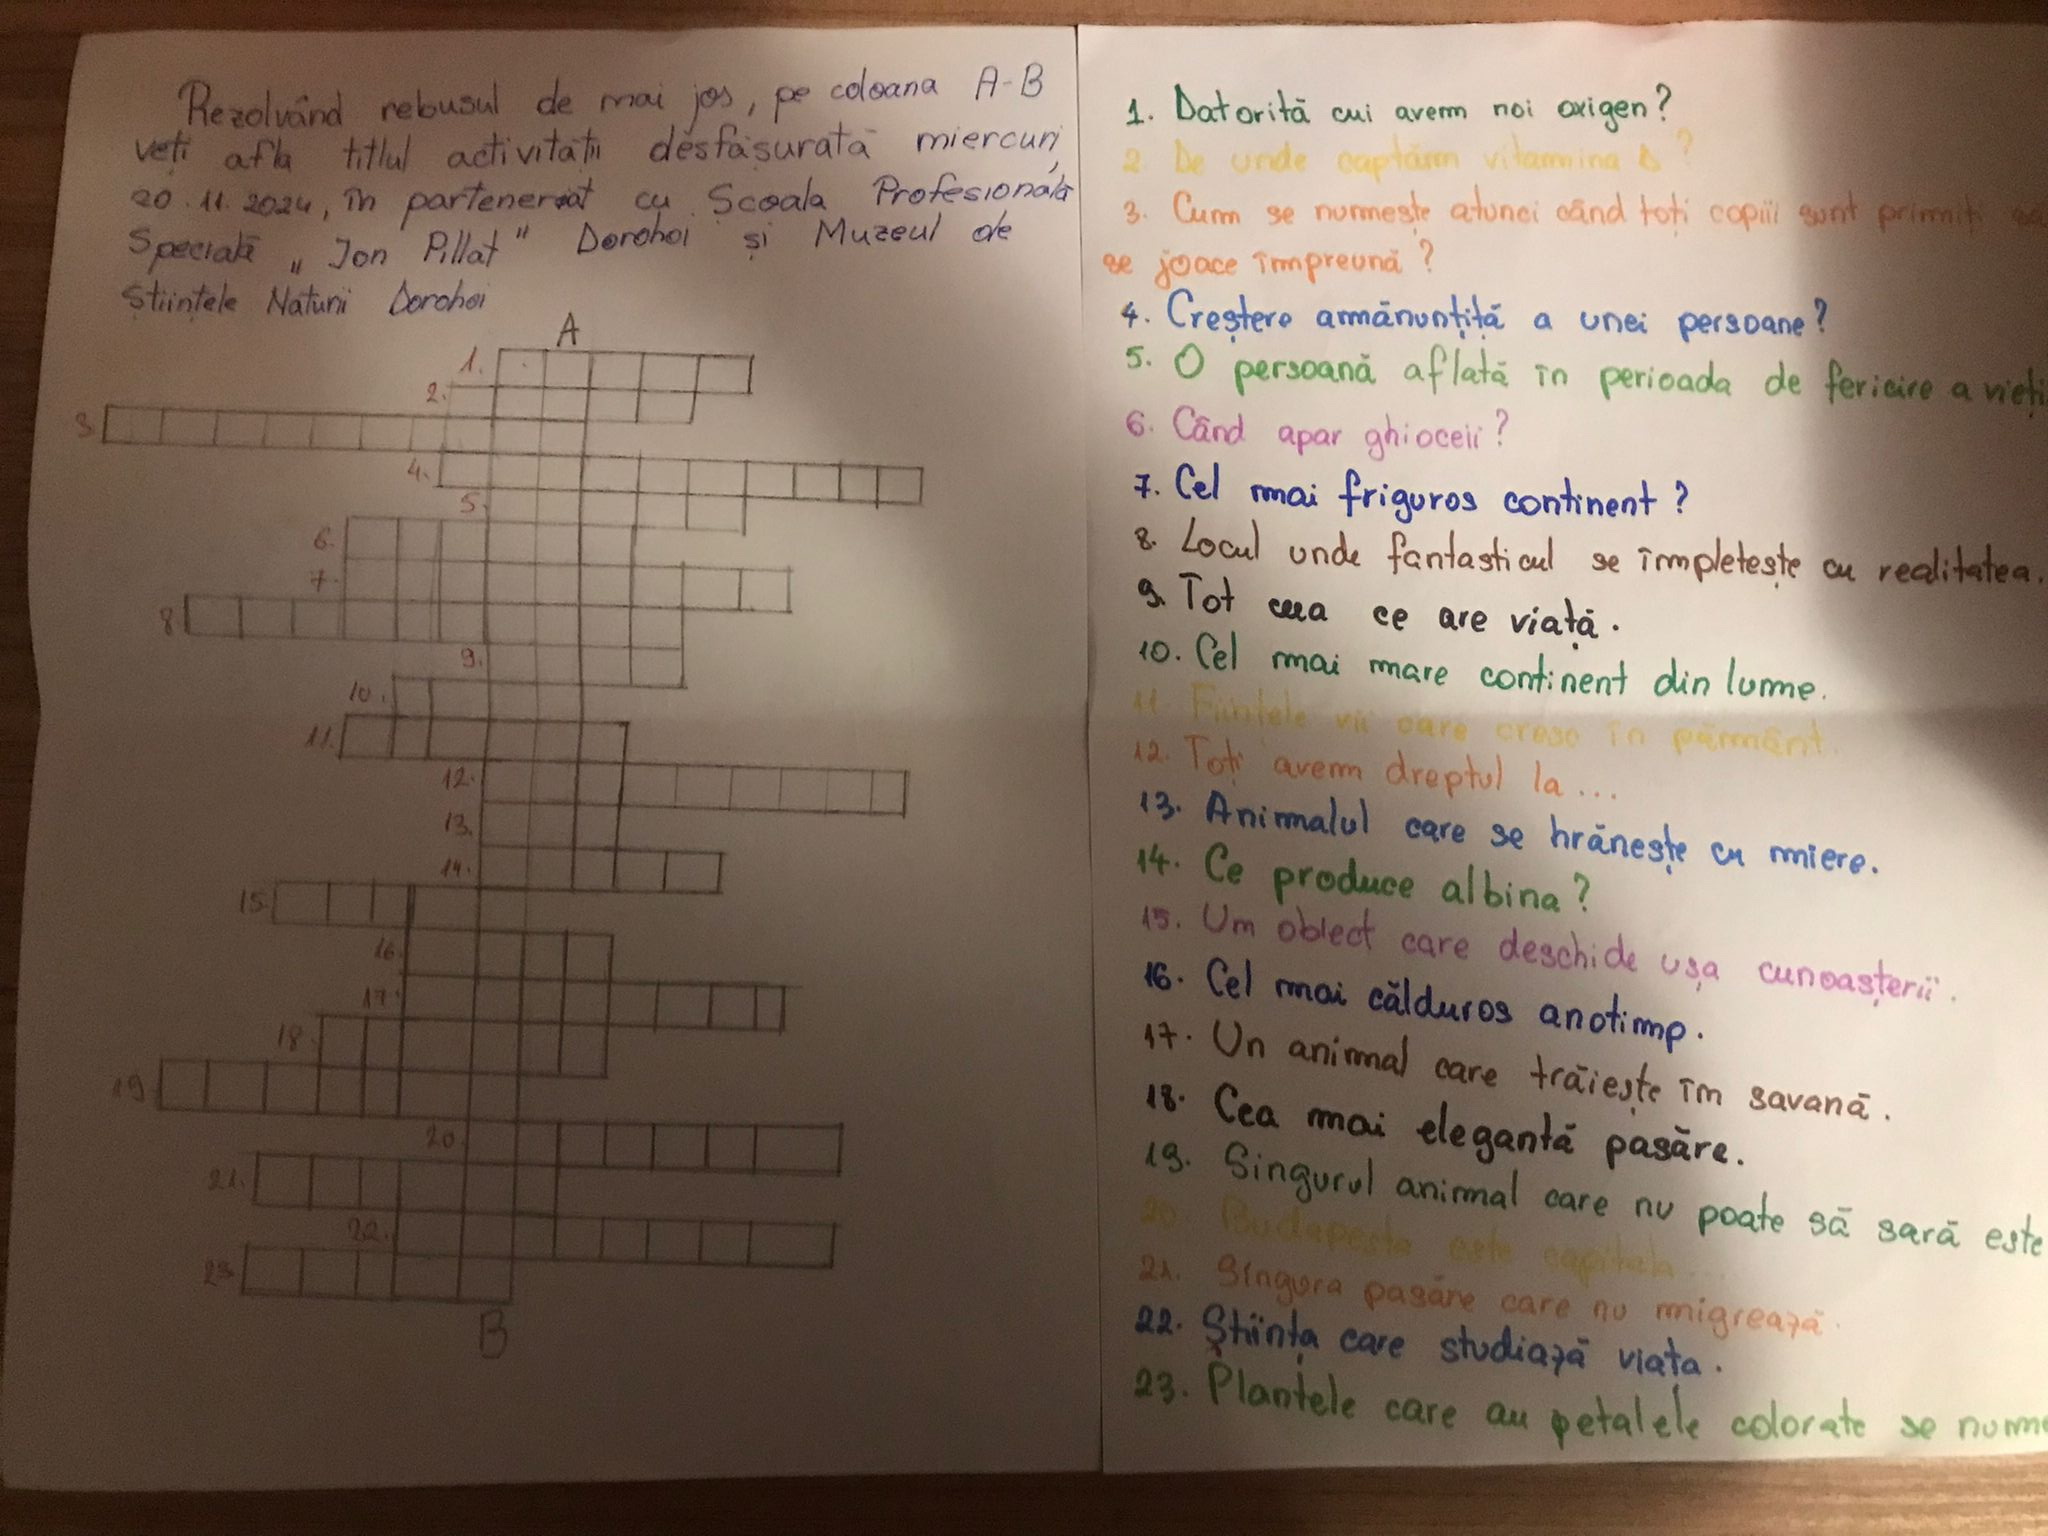 Rezolvând rebusul de mai jos, pe coloana A-B
veți afla titlul activității desfășurată miercuri,
20.11.2024, în parteneriat cu Școala Profesională
Specială „Ion Pillat" Dorohoi și Muzeul de
Științele Naturii Dorohoi
A
1.
2.
3
4.
5.
6.
7.
8
9.
10.
11.
12.
13.
14.
15.
16.
17.
18.
19
20.
21.
22.
23
B
1. Datorită cui avem noi oxigen?
2. De unde captăm vitamina D?
3. Cum se numește atunci când toți copiii sunt primiți să
se joace împreună?
4. Creștere amănunțită a unei persoane?
5. O persoană aflată în perioada de fericire a vieți
6. Când apar ghioceii?
7. Cel mai friguros continent?
8. Locul unde fantasticul se împletește cu realitatea.
9. Tot ceea ce are viață.
10. Cel mai mare continent din lume.
11. Ființele vii care cresc în pământ.
12. Toți avem dreptul la...
13. Animalul care se hrănește cu miere.
14. Ce produce albina?
15. Um obiect care deschide ușa cunoașterii.
16. Cel mai călduros anotimp.
17. Un animal care trăiește îm savană.
18. Cea mai elegantă pasăre.
19. Singurul animal care nu poate să sară este
20. Budapesta este capitala...
21. Singura pasăre care nu migrează.
22. Știința care studiază viața.
23. Plantele care au petalele colorate se nume